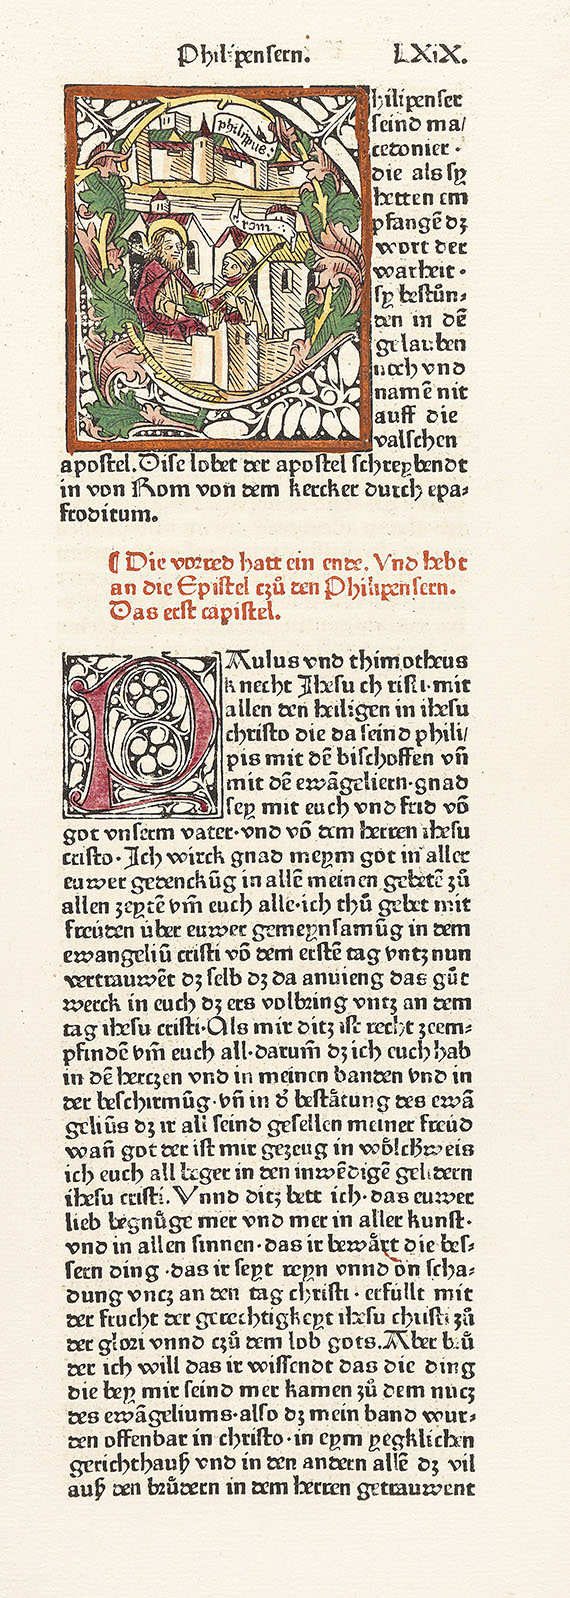 Philipensern. LXiX.
philipus.
rom
hilipenser
seind ma/
cedonier ·
die als sy
hetten em
pfangē dz
wort der
warheit ·
sy bestůn⸗
den in dē
gelauben
noch vnd
namē nit
auff die
valschen
apostel. Dise lobet der apostel schreybendt
in von Rom von dem kercker durch epa⸗
froditum.
¶ Die vorred hatt ein ende. Vnd hebt
an die Epistel czů den Philipensern.
Das erst capistel.
PAulus vnd thimotheus
knecht Ihesu ch risti · mit
allen den heiligen in ihesu
christo die da seind phili/
pis mit dē bischoffen vn̄
mit dē ewāgeliern · gnad
sey mit euch vnd frid vō
got vnserm vater · vnd vō dem herren ihesu
cristo · Ich wirck gnad meym got in aller
euwer gedenckūg in allē meinen gebetē zů
allen zeytē vm̄ euch alle · ich thů gebet mit
freüden über euwer gemeynsamūg in dem
ewangeliū cristi vō dem erstē tag vntz nun
vertrauwēt dz selb dz da anuieng das gůt
werck in euch dz ers volbring vntz an dem
tag ihesu cristi · Als mir ditz ist recht zeem⸗
pfindē vm̄ euch all · darum̄ dz ich euch hab
in dē herczen vnd in meinen banden vnd in
der beschirmūg · vn̄ in d̕ bestätung des ewā
geliūs dz ir all seind gesellen meiner freüd
wan̄ got der ist mir gezeug in wölchßweis
ich euch all beger in den inwēdigē gelidern
ihesu cristi. Vnnd ditz bett ich · das euwer
lieb begnůge mer vnd mer in aller kunst ·
vnd in allen sinnen · das ir bewärt die bes⸗
sern ding · das ir seyt reyn vnnd on scha⸗
dung vncz an den tag christi · erfüllt mit
der frucht der gerechtigkeyt ihesu christi zů
der glori vnnd czů dem lob gots. Aber brů
der ich will das ir wissendt das die ding
die bey mir seind mer kamen zů dem nucz
des ewāgeliums · also dz mein band wur⸗
den offenbar in christo · in eym yegklichen
gerichthauß vnd in den andern allē dz vil
auß den brůdern in dem herren getrauwent